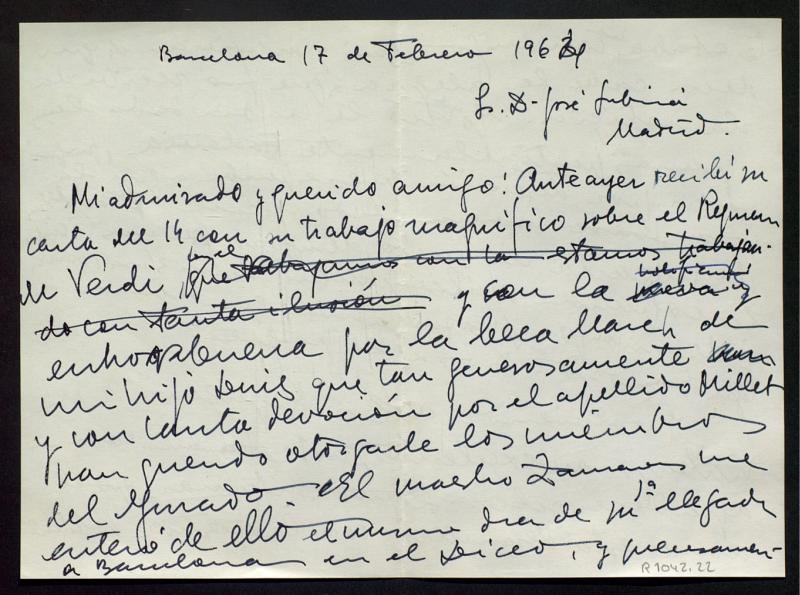 Barcelona 17 de Febrero 1964
Sr. D. José Subirá
Madrid.
Mi admirado y querido amigo: Anteayer recibí su
carta del 14 con su trabajo magnífico sobre el Requiem
de Verdi que trabajamos con la estamos trabajan-
do con tanta ilusión y con la nueva
enhorabuena por la beca March de
mi hijo Luis que tan generosamente
y con tanta devoción por el apellido Millet
han querido otorgarle los miembros
del Jurado. El maestro Zamacois me
enteró de ello el mismo día de su llegada
a Barcelona en el Liceo, y precisamen-
R 1042.22